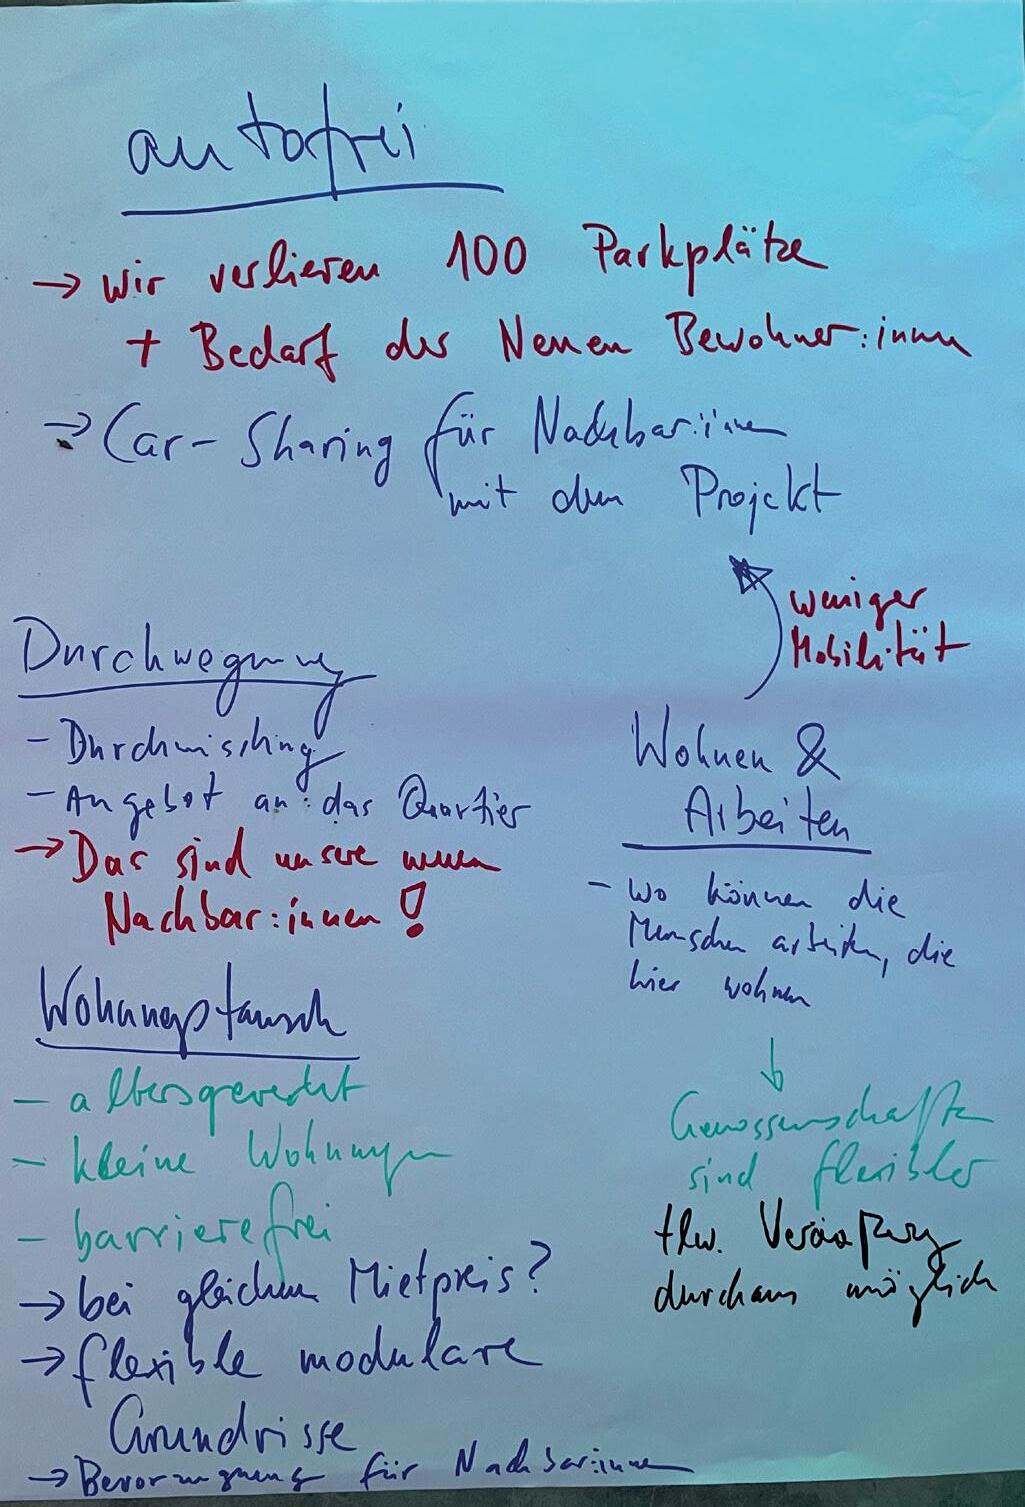 autofrei
→ wir verlieren 100 Parkplätze
+ Bedarf der Neuen Bewohner:innen
→ Car-Sharing für Nachbar:innen
mit dem Projekt
weniger
Mobilität
Durchwegung
- Durchmischung
- Angebot an das Quartier
→ Das sind unsere neuen
Nachbar:innen!
Wohnen &
Arbeiten
- wo können die
Menschen arbeiten, die
hier wohnen
↓
Genossenschaften
sind flexibler
tlw.
durchaus möglich
Wohnungstausch
- altersgerecht
- kleine Wohnungen
- barrierefrei
→ bei gleichem Mietpreis?
→ flexible modulare
Grundrisse
→ Bevorzugung für Nachbar:innen